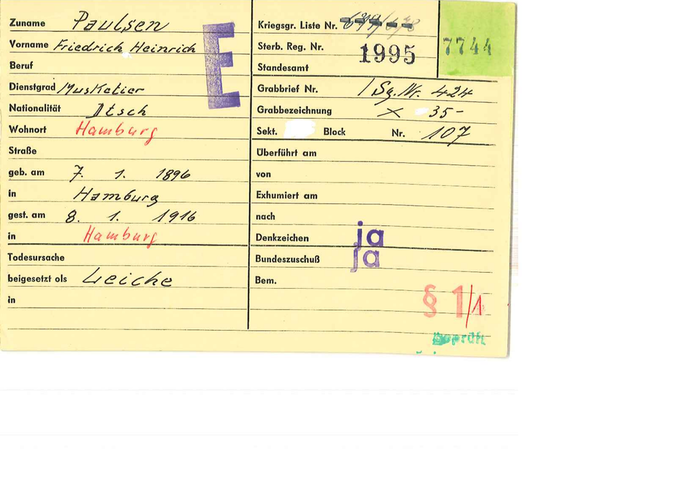 Zuname Paulsen
Vorname Friedrich Heinrich
Beruf
Dienstgrad Musketier
Nationalität Dtsch
Wohnort Hamburg
Straße
geb. am 7. 1. 1896
in Hamburg
gest. am 8. 1. 1916
in Hamburg
Todesursache
beigesetzt als Leiche
in
E
Kriegsgr. Liste Nr.
Sterb. Reg. Nr. 1995
Standesamt
7744
Grabbrief Nr. / Sg. Nr. 424
Grabbezeichnung X 35-
Sekt. Block Nr. 107
Überführt am
von
Exhumiert am
nach
Denkzeichen ja
Bundeszuschuß ja
Bem.
§ 1/1